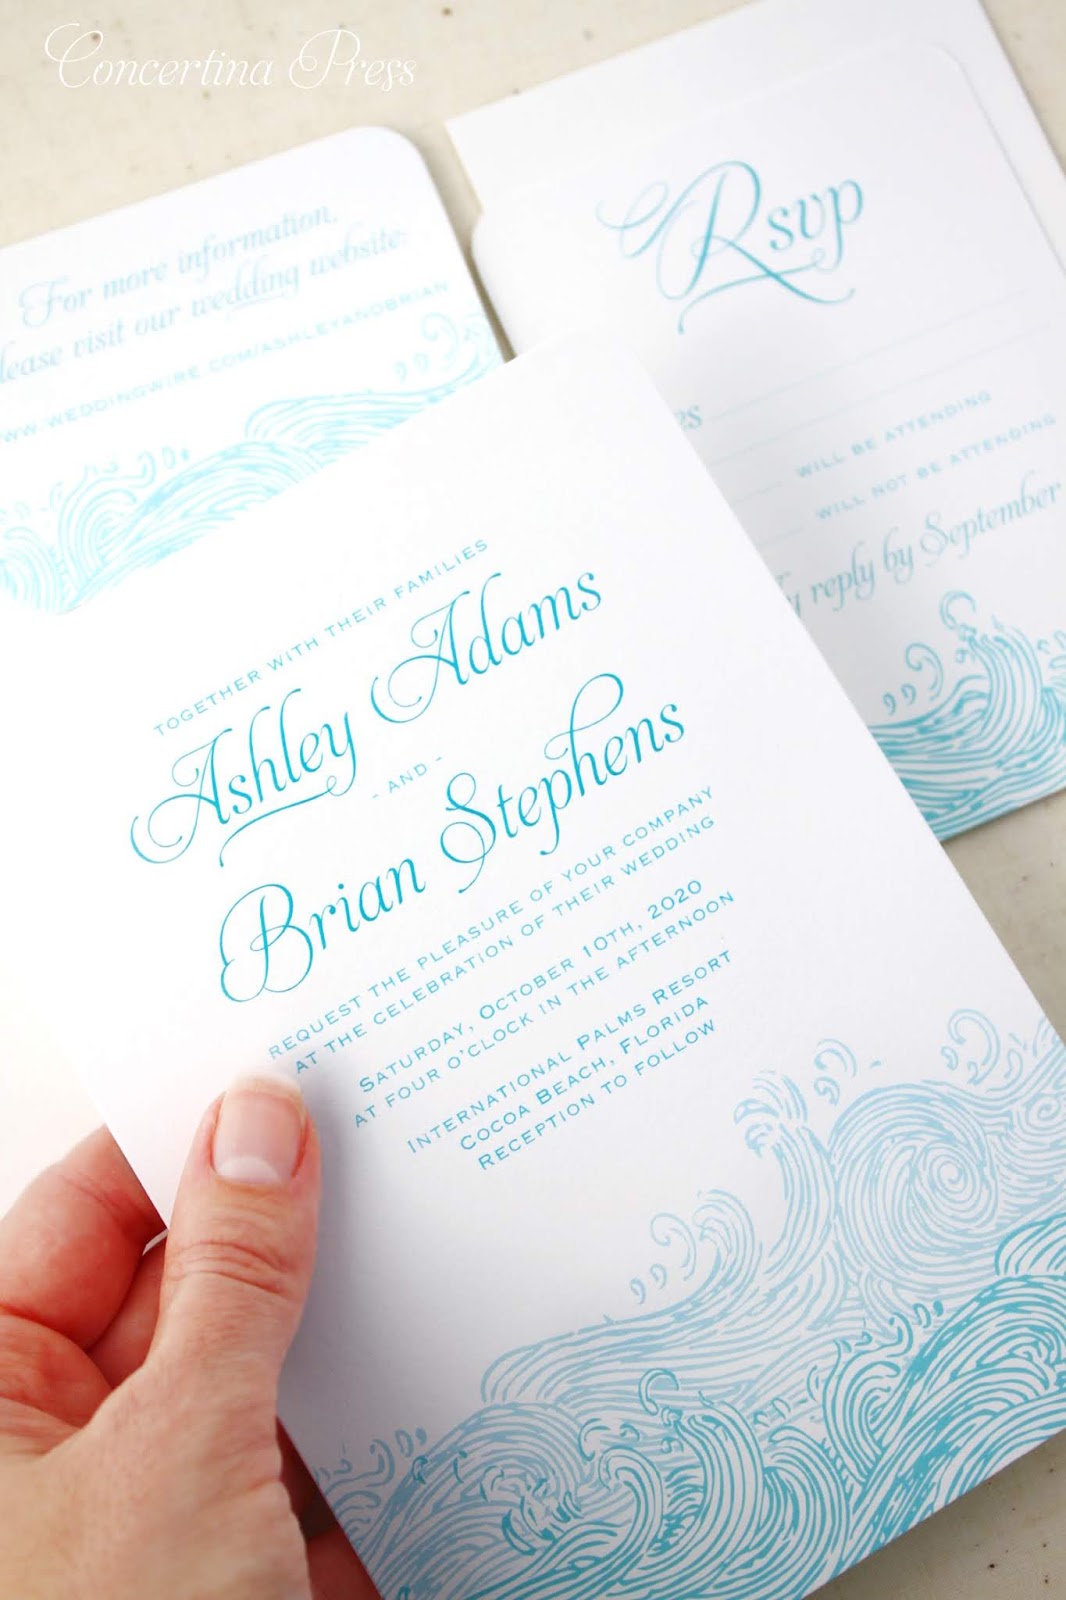 Concertina Press
For more information,
please visit our wedding website:
WWW.WEDDINGWIRE.COM/ASHLEYANDBRIAN
Rsvp
WILL BE ATTENDING
WILL NOT BE ATTENDING
reply by September
TOGETHER WITH THEIR FAMILIES
Ashley Adams
- AND -
Brian Stephens
REQUEST THE PLEASURE OF YOUR COMPANY
AT THE CELEBRATION OF THEIR WEDDING
SATURDAY, OCTOBER 10TH, 2020
AT FOUR O'CLOCK IN THE AFTERNOON
INTERNATIONAL PALMS RESORT
COCOA BEACH, FLORIDA
RECEPTION TO FOLLOW